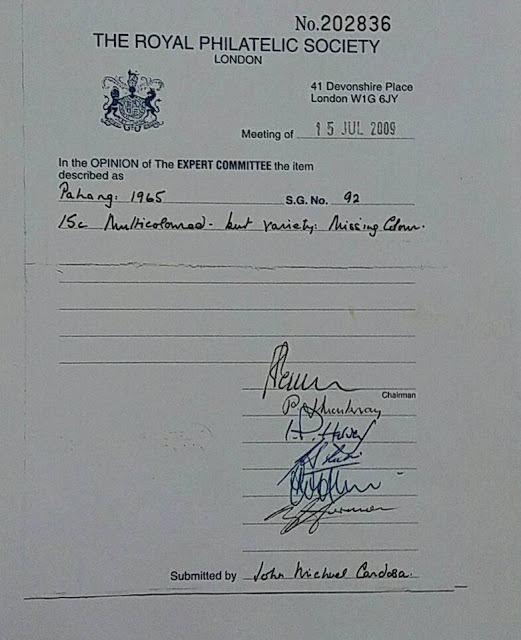 No.202836
THE ROYAL PHILATELIC SOCIETY
LONDON
41 Devonshire Place
London W1G 6JY
Meeting of 15 JUL 2009
In the OPINION of The EXPERT COMMITTEE the item
described as
Pahang. 1965 S.G. No. 92
15c Multicoloured - but variety: Missing Colour.
Chairman
Submitted by John Michael Cardosa.